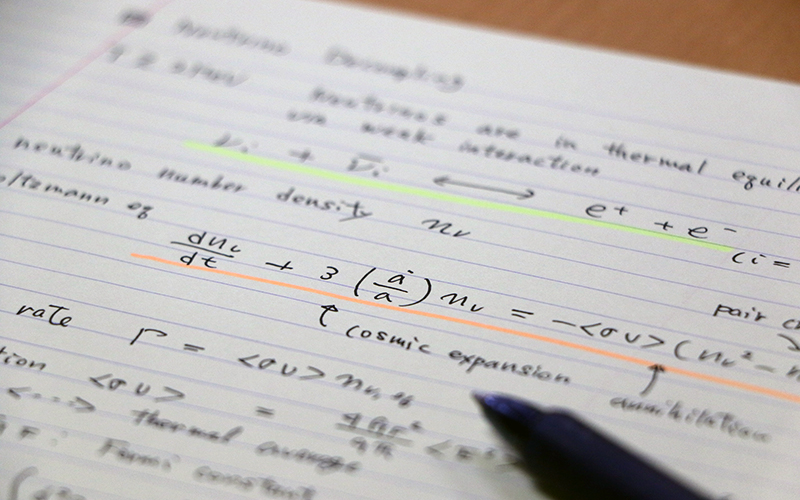 Neutrino Decoupling
Neutrinos are in thermal equil
via weak interaction
νi + ν̄i ⟷ e⁺ + e⁻
(i =
neutrino number density nν
oltzmann eq
dnν/dt + 3 (ȧ/a) nν = -<συ> (nν² - n
↑ cosmic expansion
↑ annihilation
pair c
rate Γ = <συ> nν,eq
tion <συ> =
<...> thermal average
GF : Fermi constant